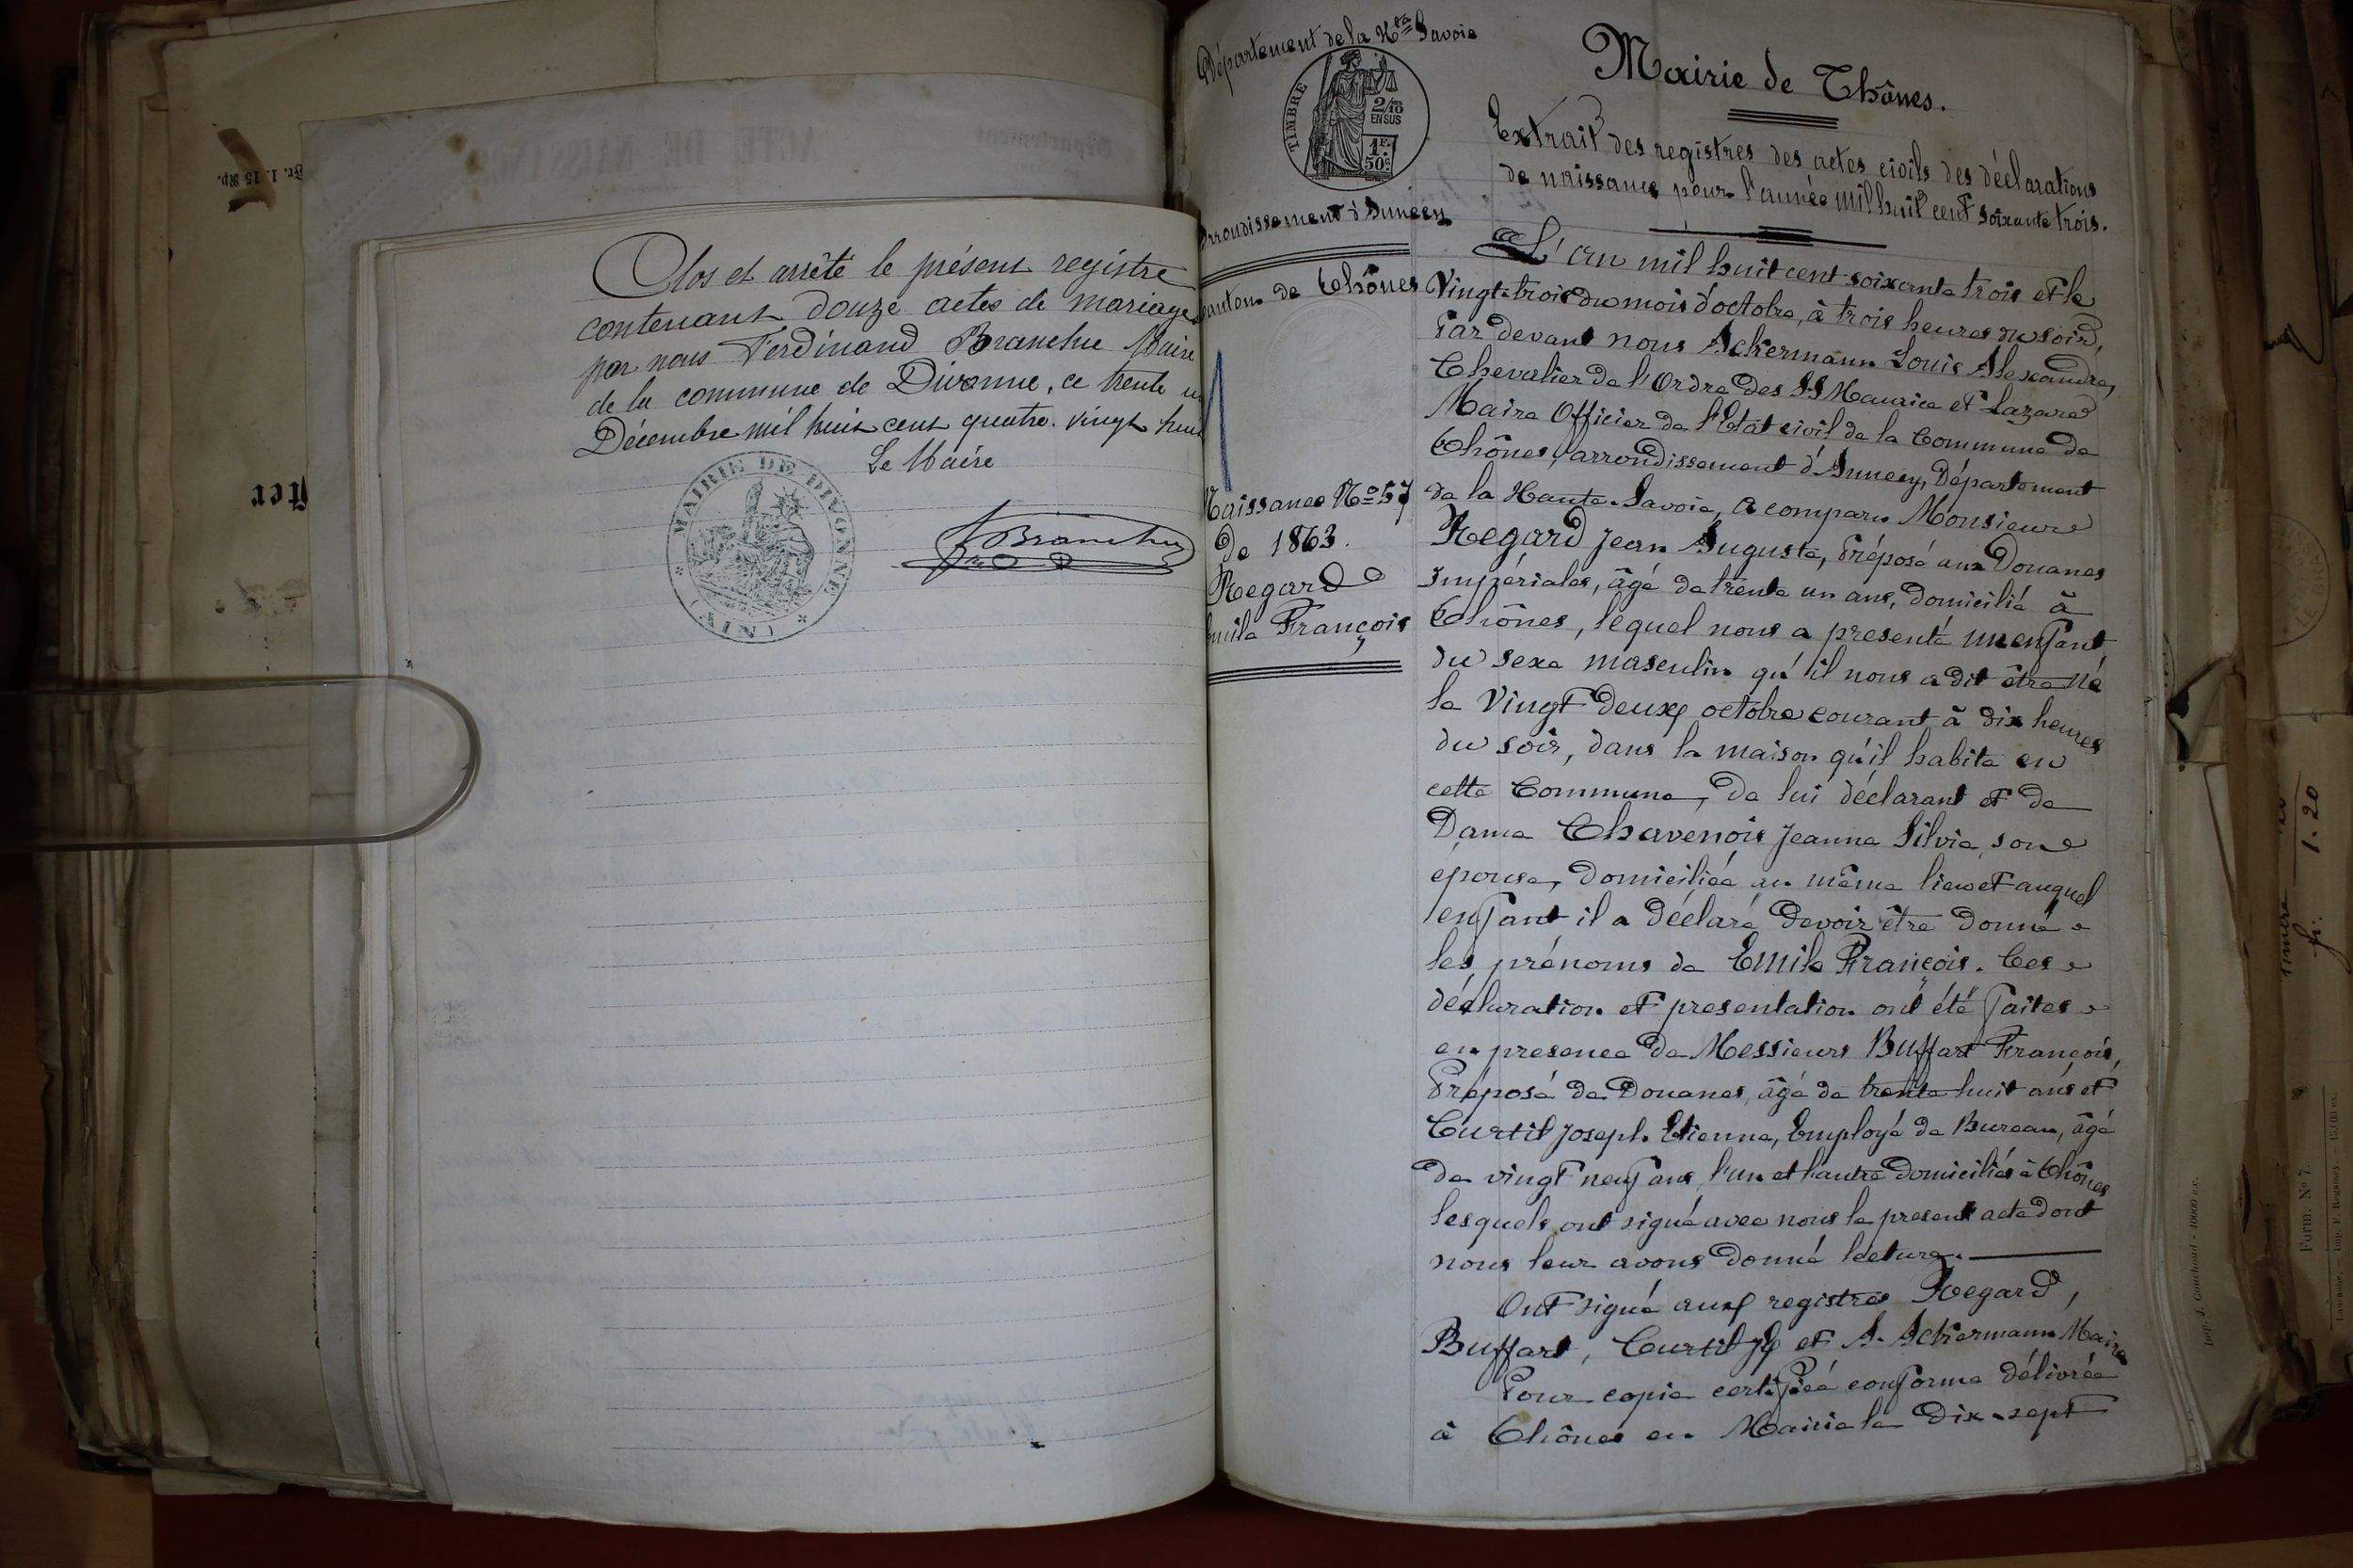 Clos et arrêté le présent registre
contenant douze actes de mariage
par nous Ferdinand Branchu Maire
de la commune de Divonne, ce trente
Décembre mil huit cent quatre-vingt huit
Le Maire
MAIRIE DE DIVONNE
(AIN)
Branchu
Département de la Hte Savoie
TIMBRE
2/10
EN SUS
1F.
50c
Arrondissement d'Annecy
Canton de Thônes
Naissance No 57
de 1863.
Regard
Emile François
Mairie de Thônes.
Extrait des registres des actes civils des déclarations
de naissance pour l'année mil huit cent soixante trois.
L'an mil huit cent soixante trois et le
Vingt-trois du mois d'octobre, à trois heures du soir,
Par devant nous Ackermann Louis Alexandre,
Chevalier de l'Ordre des SS Maurice et Lazare
Maire Officier de l'Etat civil de la Commune de
Thônes, arrondissement d'Annecy, Département
de la Haute-Savoie, a comparu Monsieur
Regard Jean Auguste, Préposé aux Douanes
Impériales, âgé de trente un ans, domicilié à
Thônes, lequel nous a presenté un enfant
du sexe masculin qu'il nous a dit être né
le Vingt deux octobre courant à dix heures
du soir, dans la maison qu'il habite en
cette Commune, de lui déclarant et de
Dame Chavenois Jeanne Silvie, son
épouse, domiciliée au même lieu et auquel
enfant il a déclaré devoir être donné
les prénoms de Emile François. Ces
déclaration et presentation ont été faites
en presence de Messieurs Buffart François,
Préposé de Douanes, âgé de trente huit ans et
Curtil Joseph Etienne, Employé de Bureau, âgé
de vingt neuf ans, l'un et l'autre domiciliés à Thônes
lesquels ont signé avec nous le present acte dont
nous leur avons donné lecture.
Ont signé aux registres Regard,
Buffart, Curtil Jh et A. Ackermann Maire
Pour copie certifiée conforme délivrée
à Thônes en Mairie le Dix-sept
fr. 1.20
Form. No 7.
Fr. 1.15 Rp.